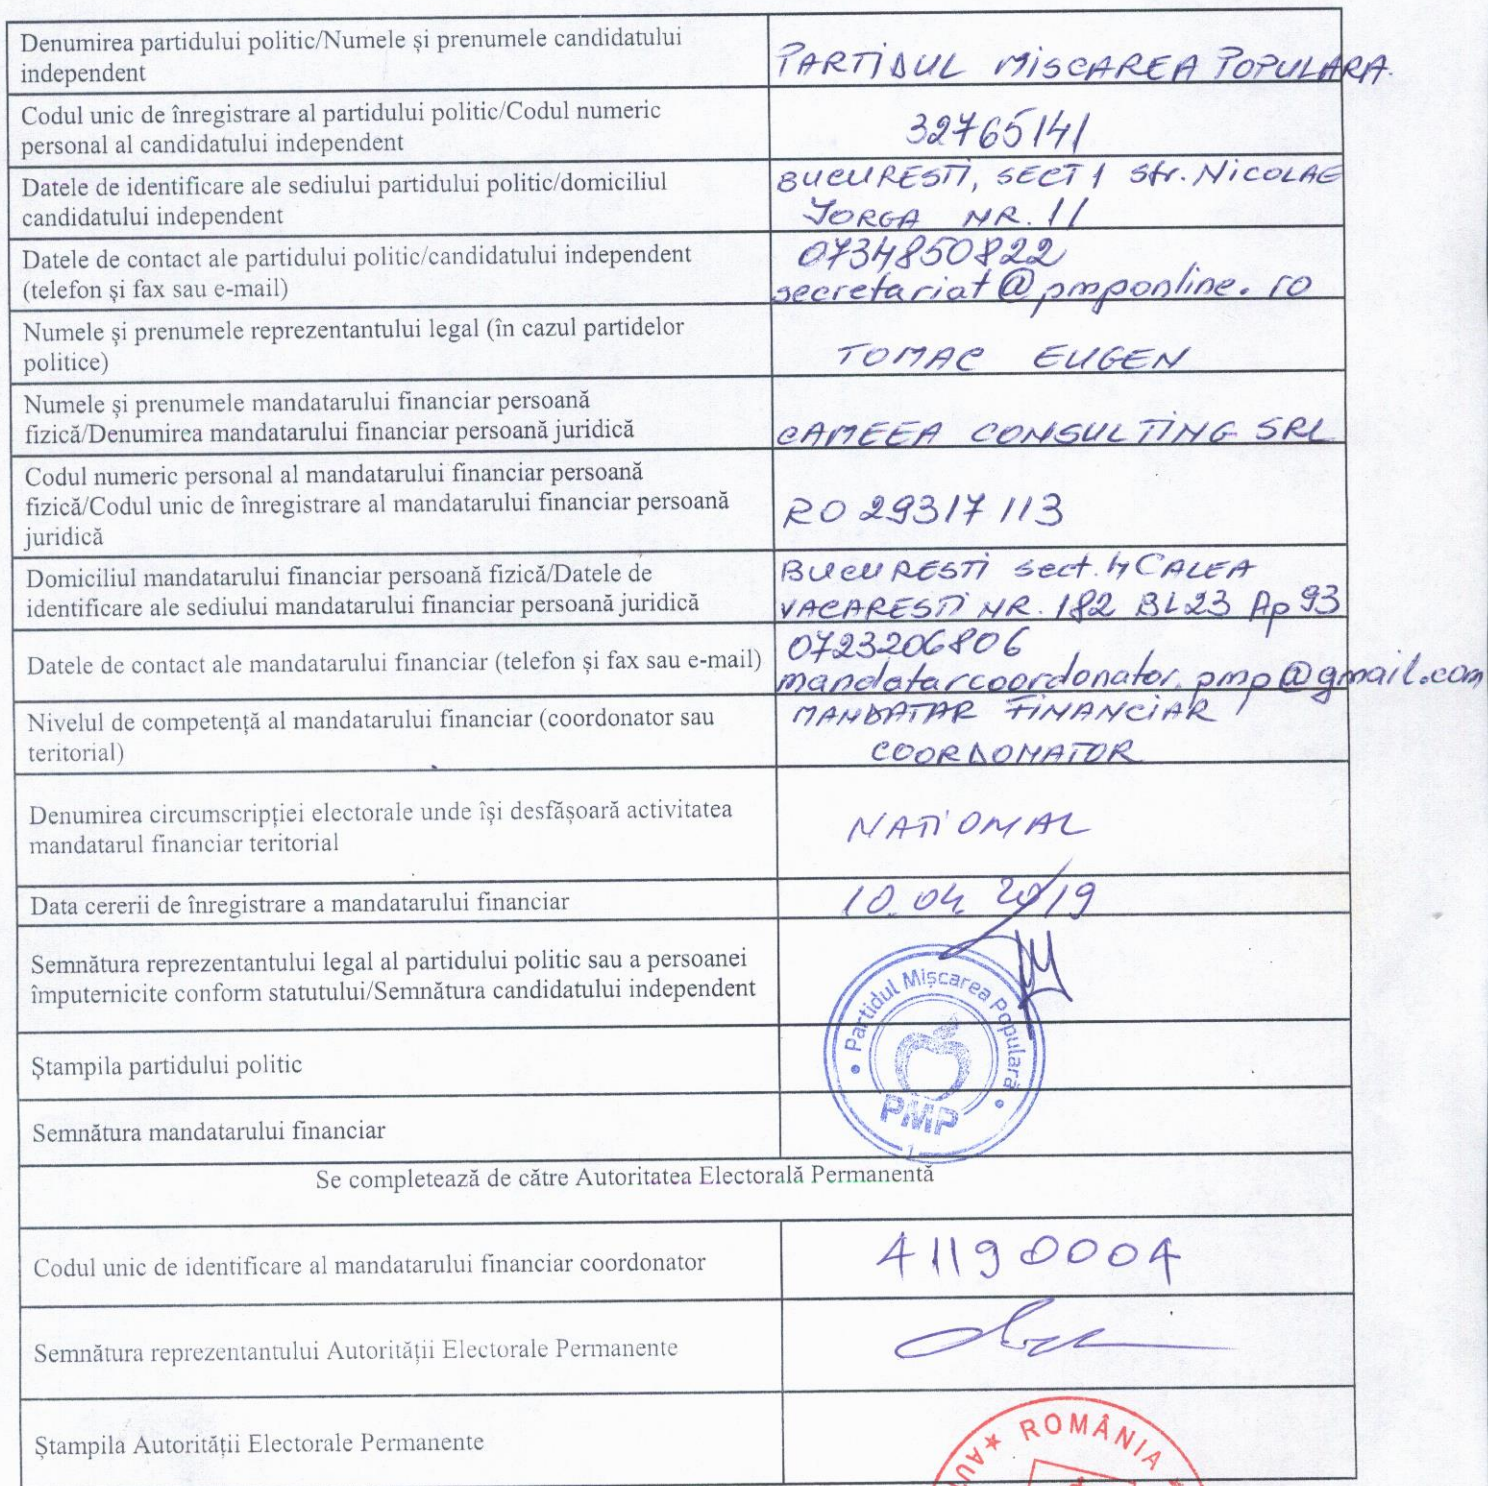 Denumirea partidului politic/Numele și prenumele candidatului
independent
PARTIDUL MISCAREA POPULARA.
Codul unic de înregistrare al partidului politic/Codul numeric
personal al candidatului independent
32765141
Datele de identificare ale sediului partidului politic/domiciliul
candidatului independent
BUCURESTI, SECT 1 Str. NICOLAE
IORGA NR. 11
Datele de contact ale partidului politic/candidatului independent
(telefon și fax sau e-mail)
0734850822
secretariat@pmponline.ro
Numele și prenumele reprezentantului legal (în cazul partidelor
politice)
TOMAC EUGEN
Numele și prenumele mandatarului financiar persoană
fizică/Denumirea mandatarului financiar persoană juridică
CAMEEA CONSULTING SRL
Codul numeric personal al mandatarului financiar persoană
fizică/Codul unic de înregistrare al mandatarului financiar persoană
juridică
RO 29317113
Domiciliul mandatarului financiar persoană fizică/Datele de
identificare ale sediului mandatarului financiar persoană juridică
BUCURESTI sect. 4 CALEA
VACARESTI NR. 182 BL23 Ap 93
Datele de contact ale mandatarului financiar (telefon și fax sau e-mail)
0723206806
mandatarcoordonator.pmp@gmail.com
Nivelul de competență al mandatarului financiar (coordonator sau
teritorial)
MANDATAR FINANCIAR
COORDONATOR
Denumirea circumscripției electorale unde își desfășoară activitatea
mandatarul financiar teritorial
NATIONAL
Data cererii de înregistrare a mandatarului financiar
10.04.2019
Semnătura reprezentantului legal al partidului politic sau a persoanei
împuternicite conform statutului/Semnătura candidatului independent
Partidul Mișcarea Populară
PMP
1
Ștampila partidului politic
Semnătura mandatarului financiar
Se completează de către Autoritatea Electorală Permanentă
Codul unic de identificare al mandatarului financiar coordonator
41190004
Semnătura reprezentantului Autorității Electorale Permanente
Ștampila Autorității Electorale Permanente
ROMÂNIA